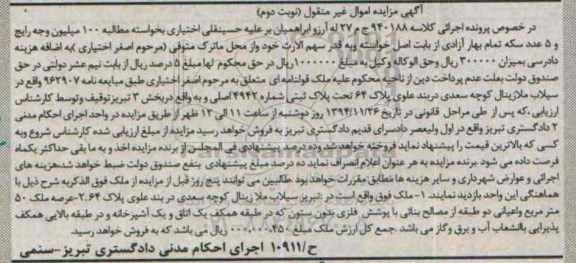 آگهی مزایده اموال غیر منقول (نوبت دوم)
در خصوص پرونده اجرائی کلاسه ۹۴۰۱۸۸ ج ۲۷ له آرزو ابراهیمیان بر علیه حسینقلی اختیاری بخواسته مطالبه ۱۰۰ میلیون وجه رایج
و ۵ عدد سکه تمام بهار آزادی از بابت اصل خواسته وبه قدر سهم الارث خود واز محل ماترک متوفی (مرحوم اصغر اختیاری) به اضافه هزینه
دادرسی بمیزان ۳۰۰۰۰۰۰ ریال وحق الوکاله وکیل به مبلغ ۱۰۰۰۰۰۰ ریال در حق محکوم لها مبلغ ۵ درصد ریال از بابت نیم عشر دولتی در حق
صندوق دولت بعلت عدم پرداخت دین از ناحیه محکوم علیه ملک قولنامه ای متعلق به مرحوم اصغر اختیاری طبق مبایعه نامه ۹۶۲۹۰۷ واقع در
سیلاب ملازینال کوچه سعدی دربند علوی پلاک ۶۴ تحت پلاک ثبتی شماره ۴۹۴۲ اصلی و به واقع دربخش ۳ تبریز توقیف وتوسط کارشناس
ارزیابی ،که پس از طی مراحل قانونی در تاریخ ۱۳۹۴/۱۱/۲۶ روز دوشنبه از ساعت ۱۱ الی ۱۲ ظهر از طریق مزایده در واحد اجرای احکام مدنی
۲ دادگستری تبریز واقع در اول ولیعصر دادسرای قدیم دادگستری تبریز به فروش خواهد رسید مزایده از مبلغ ارزیابی شده کارشناس شروع وبه
کسی که بالاترین قیمت را پیشنهاد نماید فروخته خواهد شد وده درصد پیشنهادی فی المجلس از برنده مزایده اخذ و به ما بقی حداکثر یکماه
فرصت داده می شود .برنده مزایده به هر عنوان اعلام انصراف نماید ده درصد مبلغ پیشنهادی بنفع صندوق دولت ضبط خواهد شد.هزینه های
اجرائی و عوارض شهرداری و سایر هزینه ها مطابق مقررات خواهد بود طالبین می توانند پنج روز قبل از مزایده از ملک فوق الذکر به شرح ذیل با
هماهنگی این واحد بازدید نمایند. ۱- ملک فوق واقع است در تبریز سیلاب ملا زینال کوچه سعدی در بند علوی پلاک ۲.۶۴-عرصه ملک ۵۰
متر مربع واعیانی دو طبقه از مصالح بنائی با پوشش فلزی بدون ستون که در طبقه همکف یک اتاق و یک آشپزخانه و در طبقه بالایی همکف
پذیرایی باانشعاب آب و برق وگاز می باشد .جمع کل ارزش ملک مبلغ ۴۵۰،۰۰۰،۰۰۰ ریال می باشد که به فروش خواهد رسید.
ح/۱۰۹۱۱ اجرای احکام مدنی دادگستری تبریز-سنمی